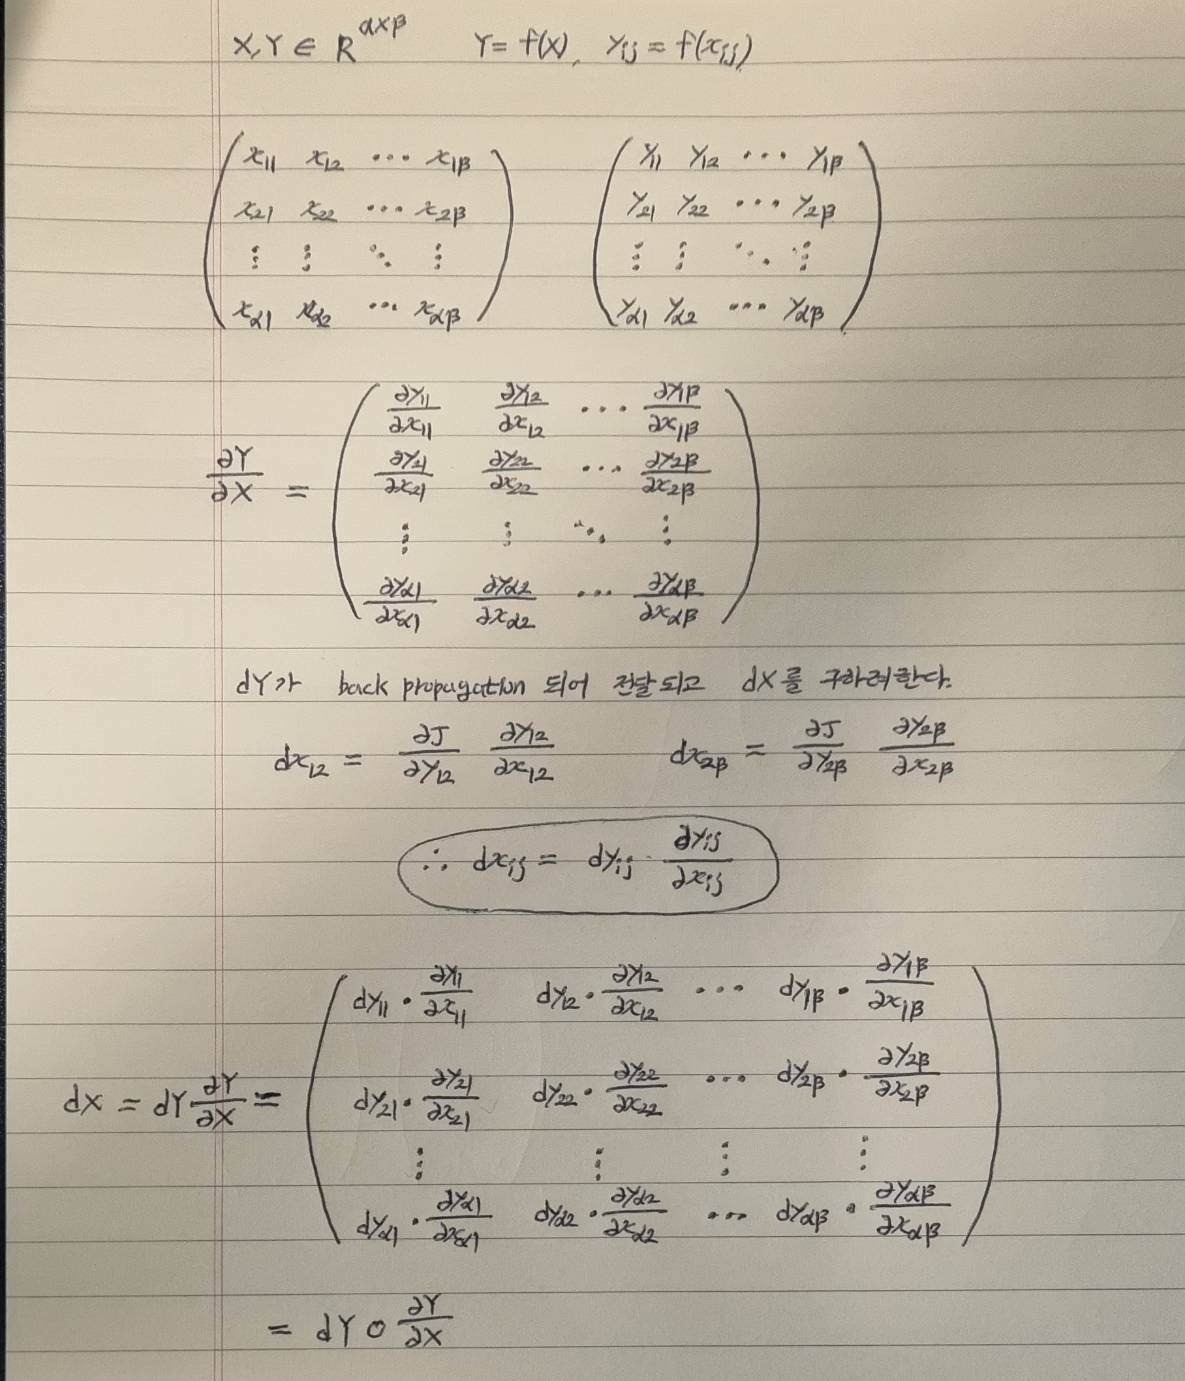 X, Y ∈ R^{α×β}  Y = f(X), y_{ij} = f(x_{ij})
( x_{11} x_{12} ⋯ x_{1β} )  ( y_{11} y_{12} ⋯ y_{1β} )
( x_{21} x_{22} ⋯ x_{2β} )  ( y_{21} y_{22} ⋯ y_{2β} )
( ⋮ ⋮ ⋱ ⋮ )  ( ⋮ ⋮ ⋱ ⋮ )
( x_{α1} x_{α2} ⋯ x_{αβ} )  ( y_{α1} y_{α2} ⋯ y_{αβ} )
( ∂y_{11}/∂x_{11} ∂y_{12}/∂x_{12} ⋯ ∂y_{1β}/∂x_{1β} )
∂Y/∂X = ( ∂y_{21}/∂x_{21} ∂y_{22}/∂x_{22} ⋯ ∂y_{2β}/∂x_{2β} )
( ⋮ ⋮ ⋱ ⋮ )
( ∂y_{α1}/∂x_{α1} ∂y_{α2}/∂x_{α2} ⋯ ∂y_{αβ}/∂x_{αβ} )
dY가 back propagation 되어 전달되고 dX를 구하려한다.
dx_{12} = ∂J/∂y_{12} ∂y_{12}/∂x_{12}  dx_{2β} = ∂J/∂y_{2β} ∂y_{2β}/∂x_{2β}
∴ dx_{ij} = dy_{ij} · ∂y_{ij}/∂x_{ij}
( dy_{11} · ∂y_{11}/∂x_{11} dy_{12} · ∂y_{12}/∂x_{12} ⋯ dy_{1β} · ∂y_{1β}/∂x_{1β} )
dX = dY ∂Y/∂X = ( dy_{21} · ∂y_{21}/∂x_{21} dy_{22} · ∂y_{22}/∂x_{22} ⋯ dy_{2β} · ∂y_{2β}/∂x_{2β} )
( ⋮ ⋮ ⋮ ⋮ )
( dy_{α1} · ∂y_{α1}/∂x_{α1} dy_{α2} · ∂y_{α2}/∂x_{α2} ⋯ dy_{αβ} · ∂y_{αβ}/∂x_{αβ} )
= dY ∘ ∂Y/∂X